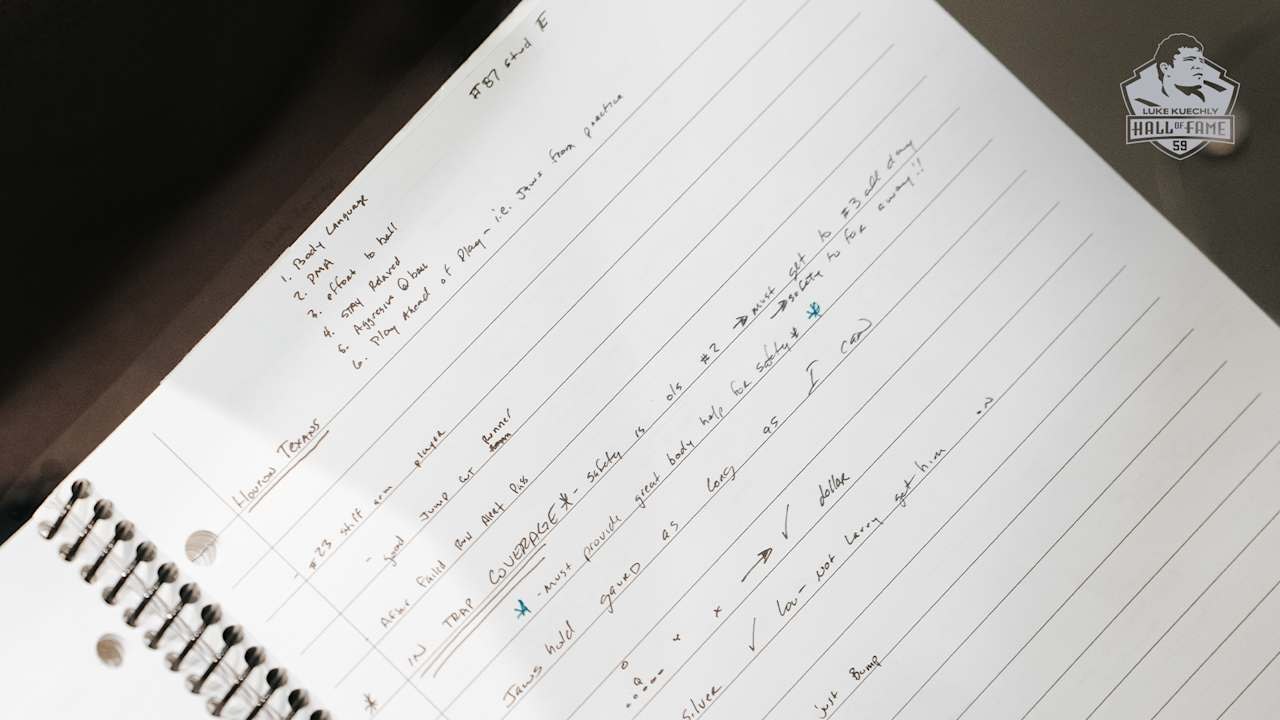 #87 stud E
1. Body Language
2. PMA
3. effort to ball
4. STAY Relaxed
5. Aggresive @ ball
6. Play Ahead of Play - i.e. Jaws from practice
Houron TEXANS
- #23 stiff arm player
- good Jump cut runner
After Failed Run Alert Pass
* IN TRAP COVERAGE * - safety is o/s #2 → must get to #3 all day
→ safety to far away!!
* - must provide great body help for safety * *
Jaws hold gaurd as long as I can
→ ✓ dollar
silver ✓ Lou - not Larry get him in
just Bump
LUKE KUECHLY
HALL OF FAME
59